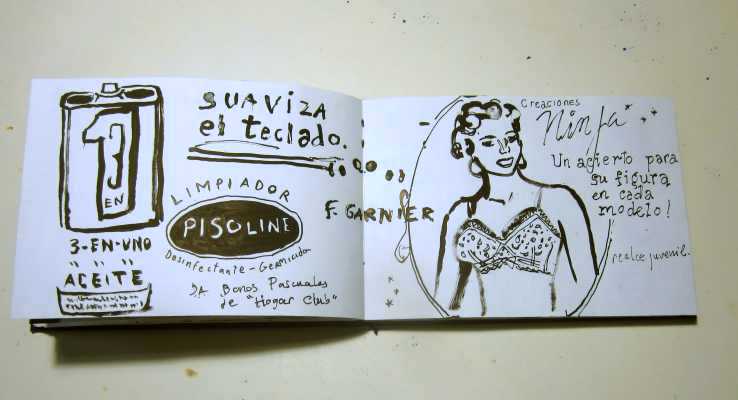 3
EN
1
3-EN-UNO
" " "
ACEITE
SUAVIZA
el teclado.
LIMPIADOR
PISOLINE
Desinfectante - Germicida
DA Bonos Pascuales
de "Hogar Club"
F. GARNIER
Creaciones
Ninfa
Un acierto para
su figura
en cada
modelo!
realce juvenil.